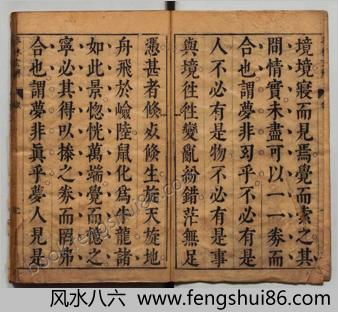 境境寢而見焉覺而索之其
間情實未盡可以一一券而
合也謂夢非幻乎不必有是
人不必有是物不必有是事
與境徃徃變亂紛錯茫無足
憑甚者倐忽倐生旋天旋地
舟飛於嶮陸鼠化爲牛龍諸
如此景惚恍萬端覺而憶之
寧必其得以㨗之券而罔弗
合也謂夢非眞乎夢人見是
风水八六 www.fengshui86.com